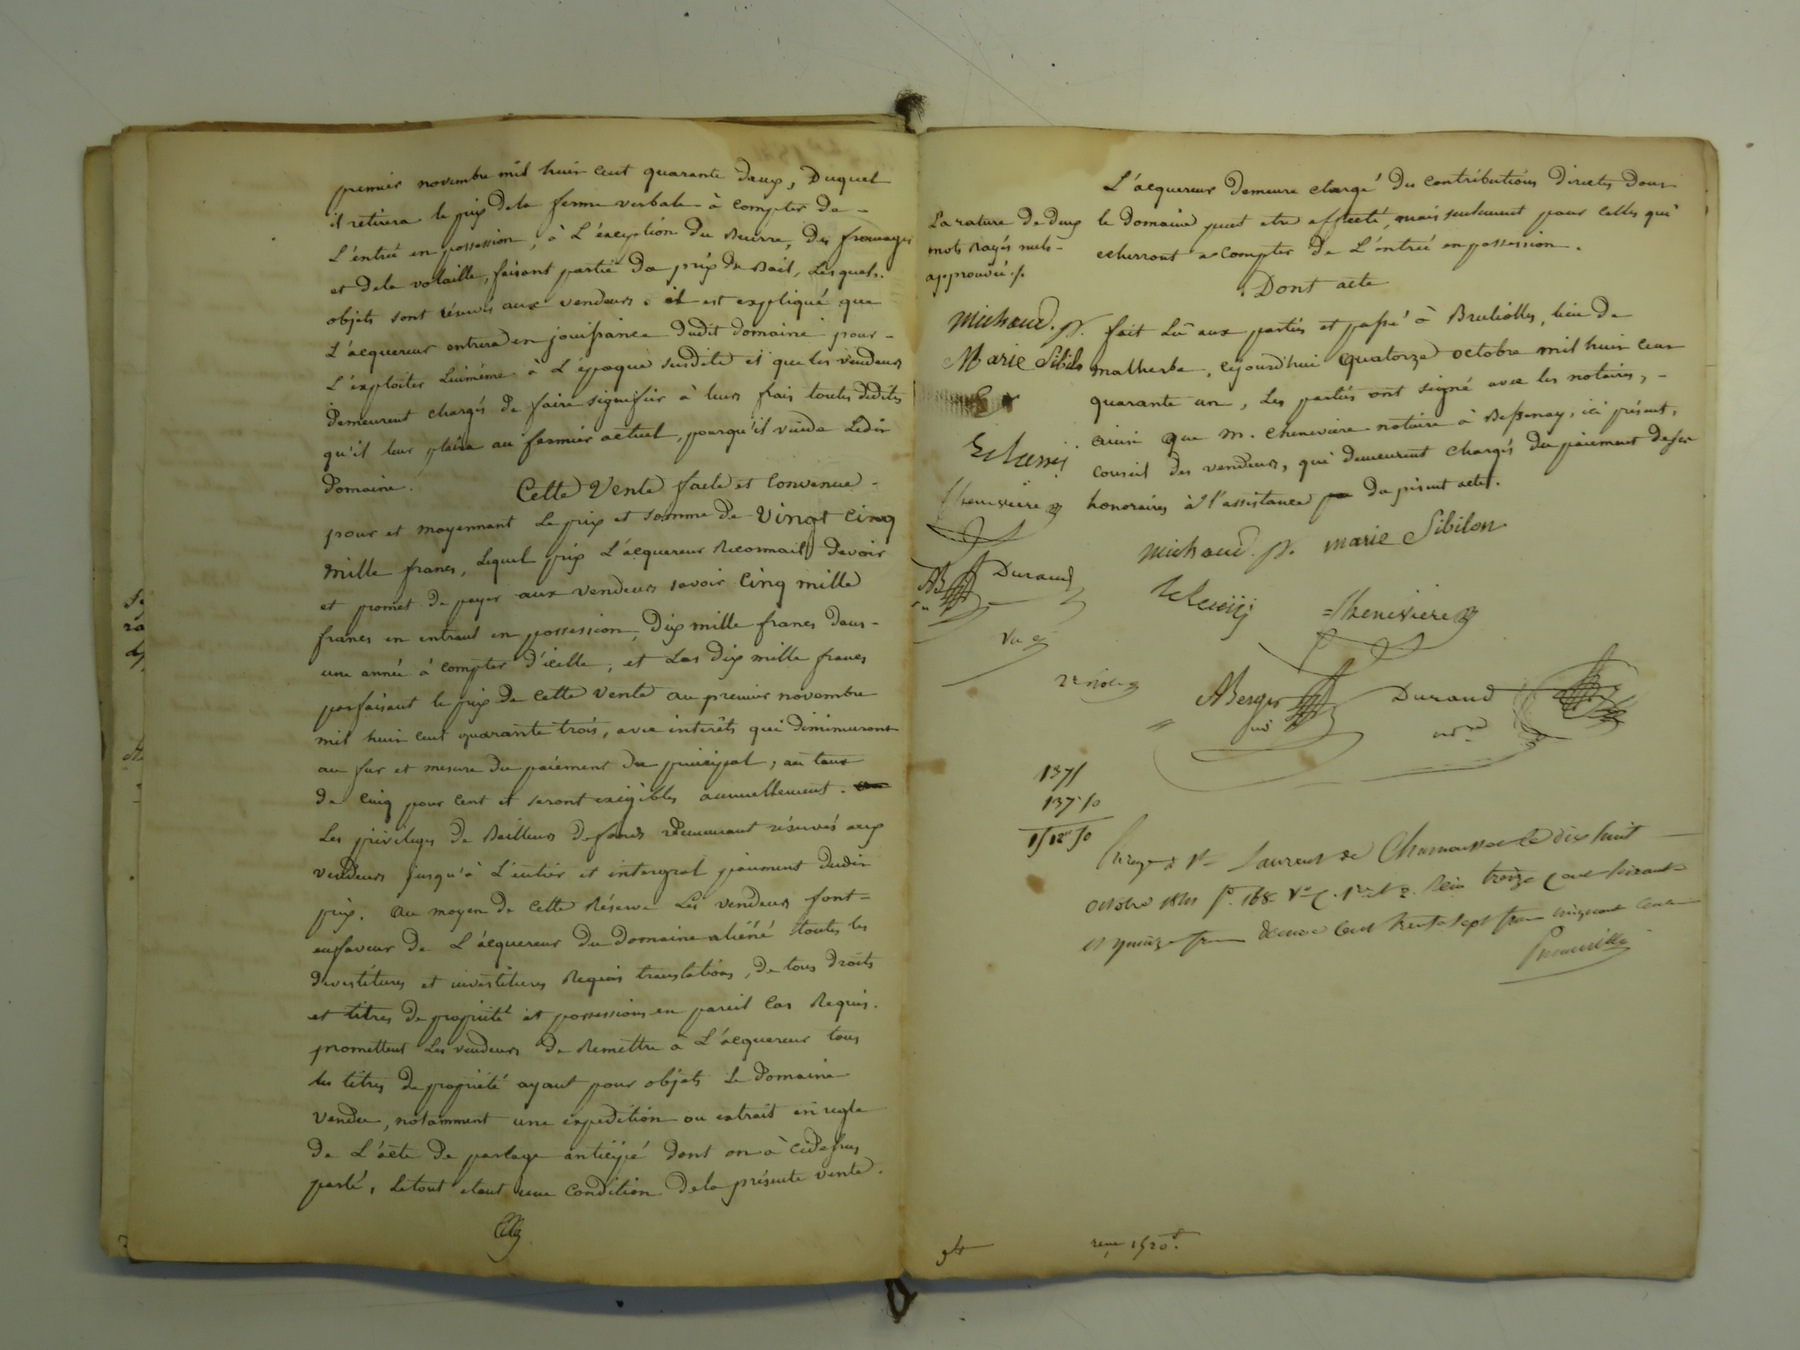 premier novembre mil huit cent quarante deux, Duquel
il retirera le prix de la ferme verbale à compter de
L'entrée en possession, à L'exception du Beurre, des fromages
et dela volaille, faisant partie du prix du Bail, Lesquels
objets sont réservés aux vendeurs. il est expliqué que
L'acquereur entrera en jouissance dudit domaine pour
L'exploiter Luimême à L'époque susdite et que les vendeurs
demeurent chargés de faire signifier à leurs frais toutes dedites
qu'il leur plaira au fermier actuel, pourqu'il vuide Ledit
domaine. Cette Vente faite et Convenue
pour et moyennant Le prix et somme de Vingt Cinq
mille francs, Lequel prix L'acquereur Reconnait devoir
et promet de payer aux vendeurs savoir Cinq mille
francs en entrant en possession, Dix mille francs dans
une année à compter d'icelle, et Les dix mille francs
parfaisant le prix de cette vente au premier novembre
mil huit cent quarante trois, avec intérêts qui diminueront
au fur et mesure du paiement du principal, au taux
de Cinq pour cent et seront exigibles annuellement.
Les privilèges de Bailleurs de fonds demeurant réservés aux
vendeurs jusqu'à L'entier et integral paiement dudit
prix. Au moyen de cette Réserve Les vendeurs font
enfaveur de L'acquereur du Domaine aliéné toutes les
devestitures et investitures Requises translations, de tous droits
et titres de propriété et possessions en pareil Cas Requis.
promettent Les vendeurs de Remettre à L'acquereur tous
les titres de propriété ayant pour objets Le domaine
vendu, notamment une expedition ou extrait en regle
de L'acte de partage anticipé dont on à cidessus
parlé, Letout etant une Condition de la présente vente.
L'acquereur demeure chargé des contributions directes dont
le domaine peut etre affecté, mais seulement pour celles qui
echerront a compter de L'entrée en possession.
Dont acte
La rature de deux
mots rayés nuls
approuvée
fait Lu aux parties et passé à Brullioles, lieu de
malherbe, cejourd'hui quatorze octobre mil huit cent
quarante un, Les parties ont signé avec les notaires,
ainsi que m. cheneviere notaire à Bessenay, ici présent,
conseil des vendeurs, qui demeurent chargés du paiement de ses
honoraires à l'assistance du présent acte.
michaud. p.
Marie Sibilon
Cheneviere
AB
Durand
michaud. p. marie Sibilon
Cheneviere
ABerger
Durand
137
137 50
Enregé à St Laurent de Chamousset le dix huit
octobre 1841 fo. 168 Vo C. Reçu treize cent soixante
et quinze francs décime cent trente sept francs cinquante centimes